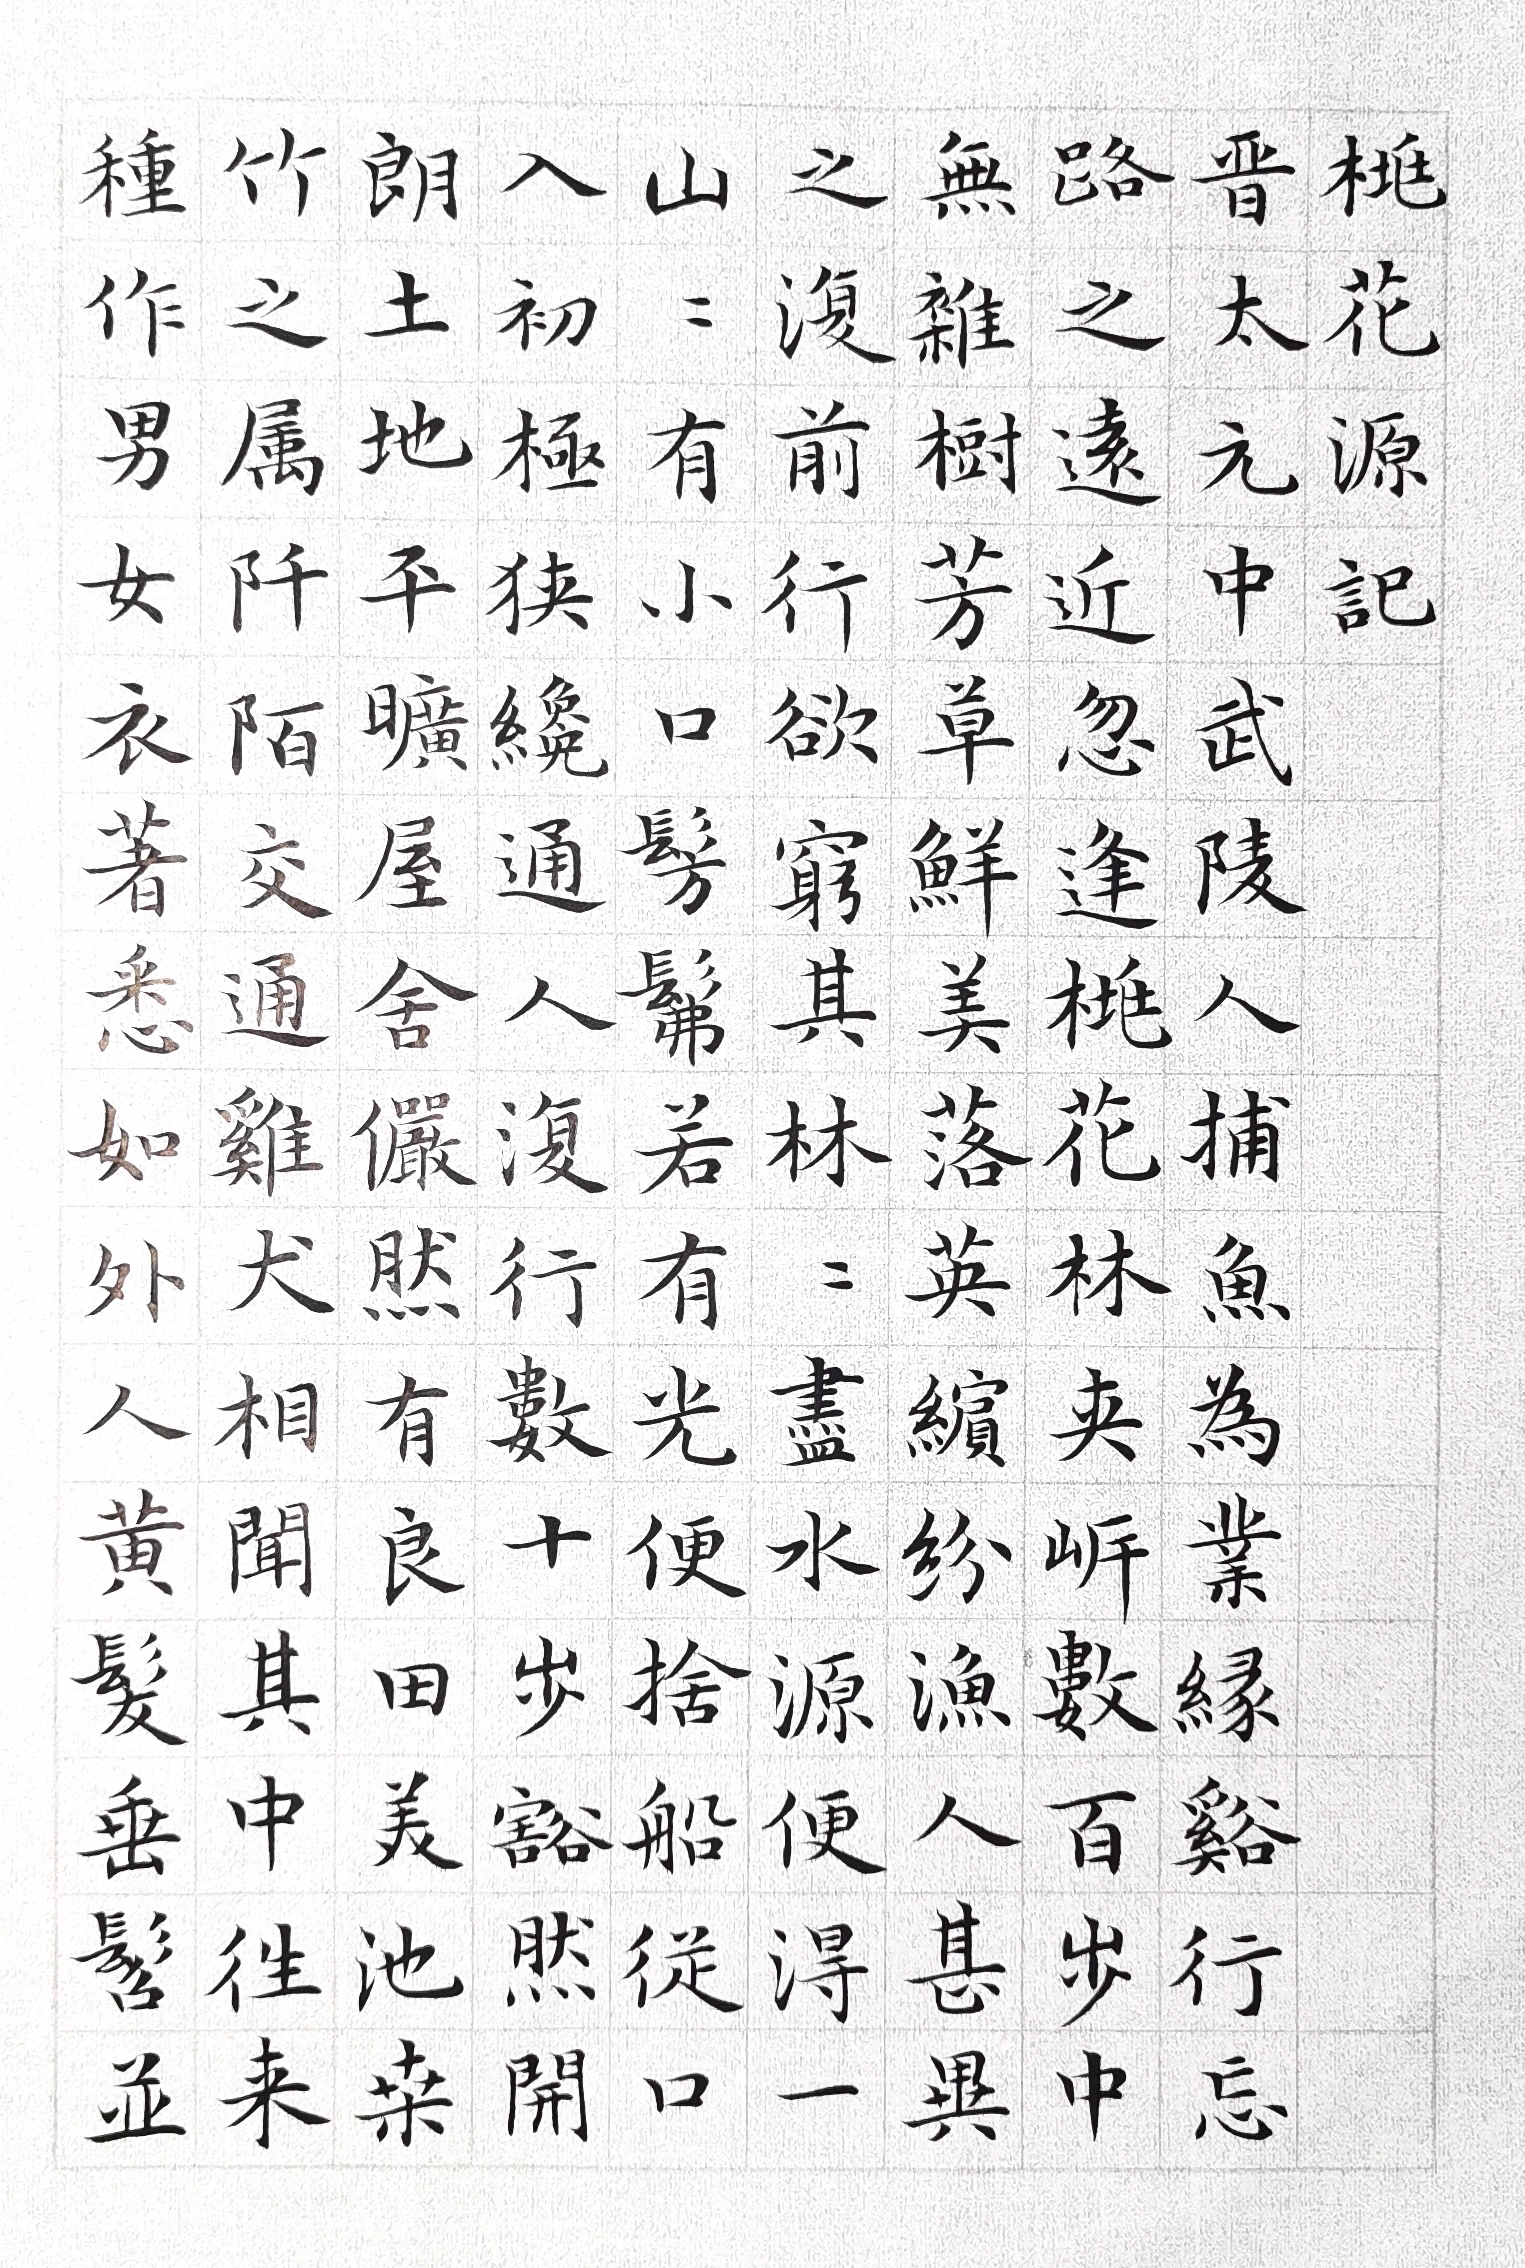 桃花源記
晋太元中武陵人捕魚為業縁谿行忘
路之遠近忽逢桃花林夾岍數百步中
無雜樹芳草鮮美落英繽紛漁人甚異
之復前行欲窮其林〻盡水源便得一
山〻有小口髣髴若有光便捨船從口
入初極狭纔通人復行數十步豁然開
朗土地平曠屋舍儼然有良田美池桒
竹之属阡陌交通雞犬相聞其中往来
種作男女衣著悉如外人黄髮垂髫並